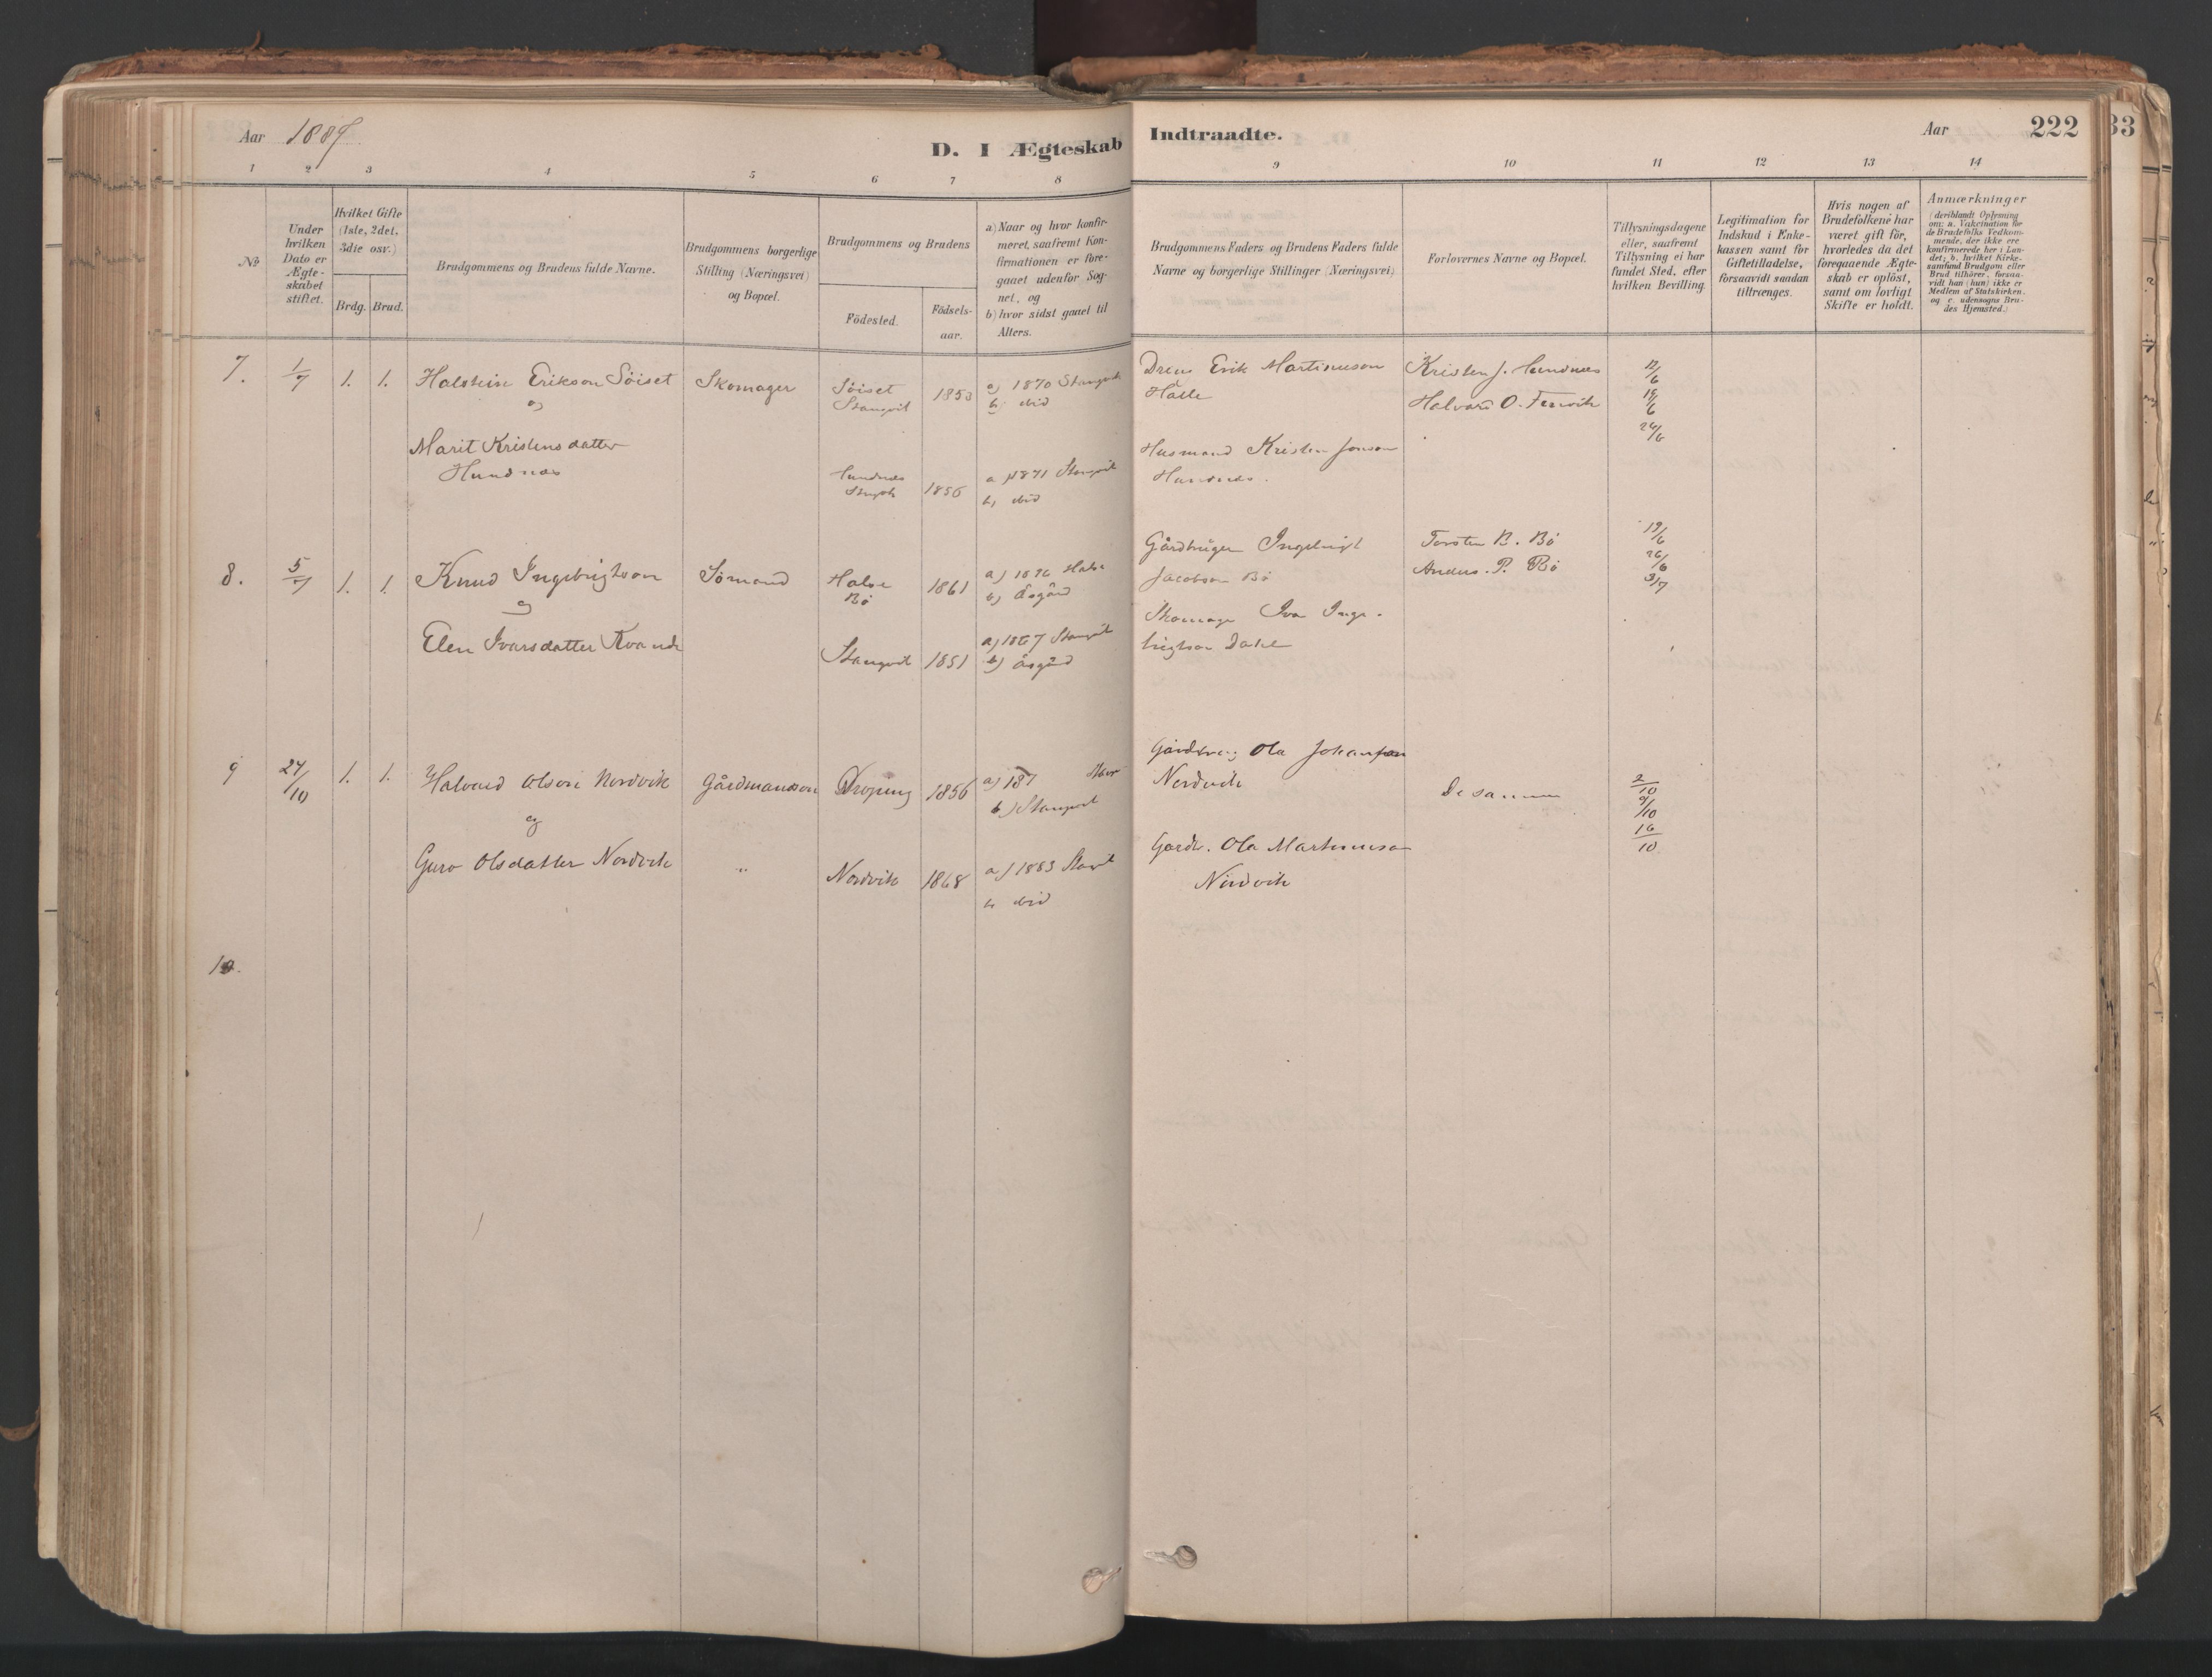 Aar 1887.
D. I Ægteskab Indtraadte.
Aar
222
33
1 2 3 4 5 6 7 8 9 10 11 12 13 14
No
Under hvilken Dato er Ægte-skabet stiftet.
Hvilket Gifte (1ste, 2det, 3die osv.)
Brdg. Brud.
Brudgommens og Brudens fulde Navne.
Brudgommens borgerlige Stilling (Næringsvei) og Bopæl.
Brudgommens og Brudens
Födested.
Födsels-aar.
a) Naar og hvor konfir-meret, saafremt Kon-firmationen er fore-gaaet udenfor Sog-net, og
b) hvor sidst gaaet til Alters.
Brudgommens Faders og Brudens Faders fulde Navne og borgerlige Stillinger (Næringsvei).
Forlovernes Navne og Bopæl.
Tillysningsdagene eller, saafremt Tillysning ei har fundet Sted, efter hvilken Bevilling.
Legitimation for Indskud i Enke-kassen samt for Giftetilladelse, forsaavidt saadan tiltrænges.
Hvis nogen af Brudefolkene har været gift för, hvorledes da det foregaaende Ægte-skab er oplöst, samt om lovligt Skifte er holdt.
Anmærkninger
(deriblandt Oplysning om: a. Vakcination för de Brudefolks Vedkom-mende, der ikke ere konfirmerede her i Lan-det; b. hvilket Kirke-samfund Brudgom eller Brud tilhörer, forsaa-vidt han (hun) ikke er Medlem af Statskirken. og c. udensogns Bru-des Hjemsted.)
7. 1/7 1. 1. Halstein Erikson Söiset Skomager Söiset 1853 a) 1870 Stangvik
og Stangvik b) ibid
Erik Martinuson Kristen J. Hundnes 12/6
Halvard O. 19/6
26/6
Marit Kristensdatter
Hundnæs
Hundnes 1856 a) 1871 Stangvik
b) ibid
Husmand Kristen Jonson
Hundnes.
8. 5/7 1. 1. Knud Ingebrigtson Sömand Halse 1861 a) 1876 Halse
og Bö b) Åsgård
Gårdbruger Ingebrigt Torsten B. Bö 19/6
Jacobson Bö Anders P. Bö 26/6
3/7
Elen Ivarsdatter Kvande Stangvik 1851 a) 1867 Stangvik
b) Åsgård
Skomager Ivar Inge-
brigtson Dahl
9 24/10 1. 1. Halvard Olson Nordvik Gårdmandsson 1856 a) 187
og b) Stangvik
Ola Johanson
Nordvik De samme 2/10
9/10
16/10
Guro Olsdatter Nordvik " Nordvik 1868 a) 1883
b ibid
Gardb. Ola Martinuson
Nordvik
10.